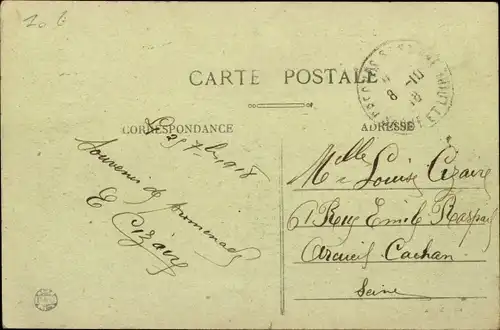 CARTE POSTALE
CORRESPONDANCE
ADRESSE
Le 29 7bre 1918
Souvenir de promenade
E Cizaire
Melle Louise Cizaire
61 Rue Emile Raspail
Arcueil Cachan
Seine
8-10
18